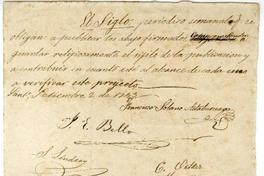 El Siglo, periodico semanal, se
obligan a publicar los abajo firmados
guardar relijiosamente el sijilo de la publicacion y
a contribuir en cuanto esté al alcance de cada uno
a verificar este proyecto.
Sant.º Setiembre 2 de 1843
Francisco Solano Astaburuaga
J. E. Bello
S. Lindsay